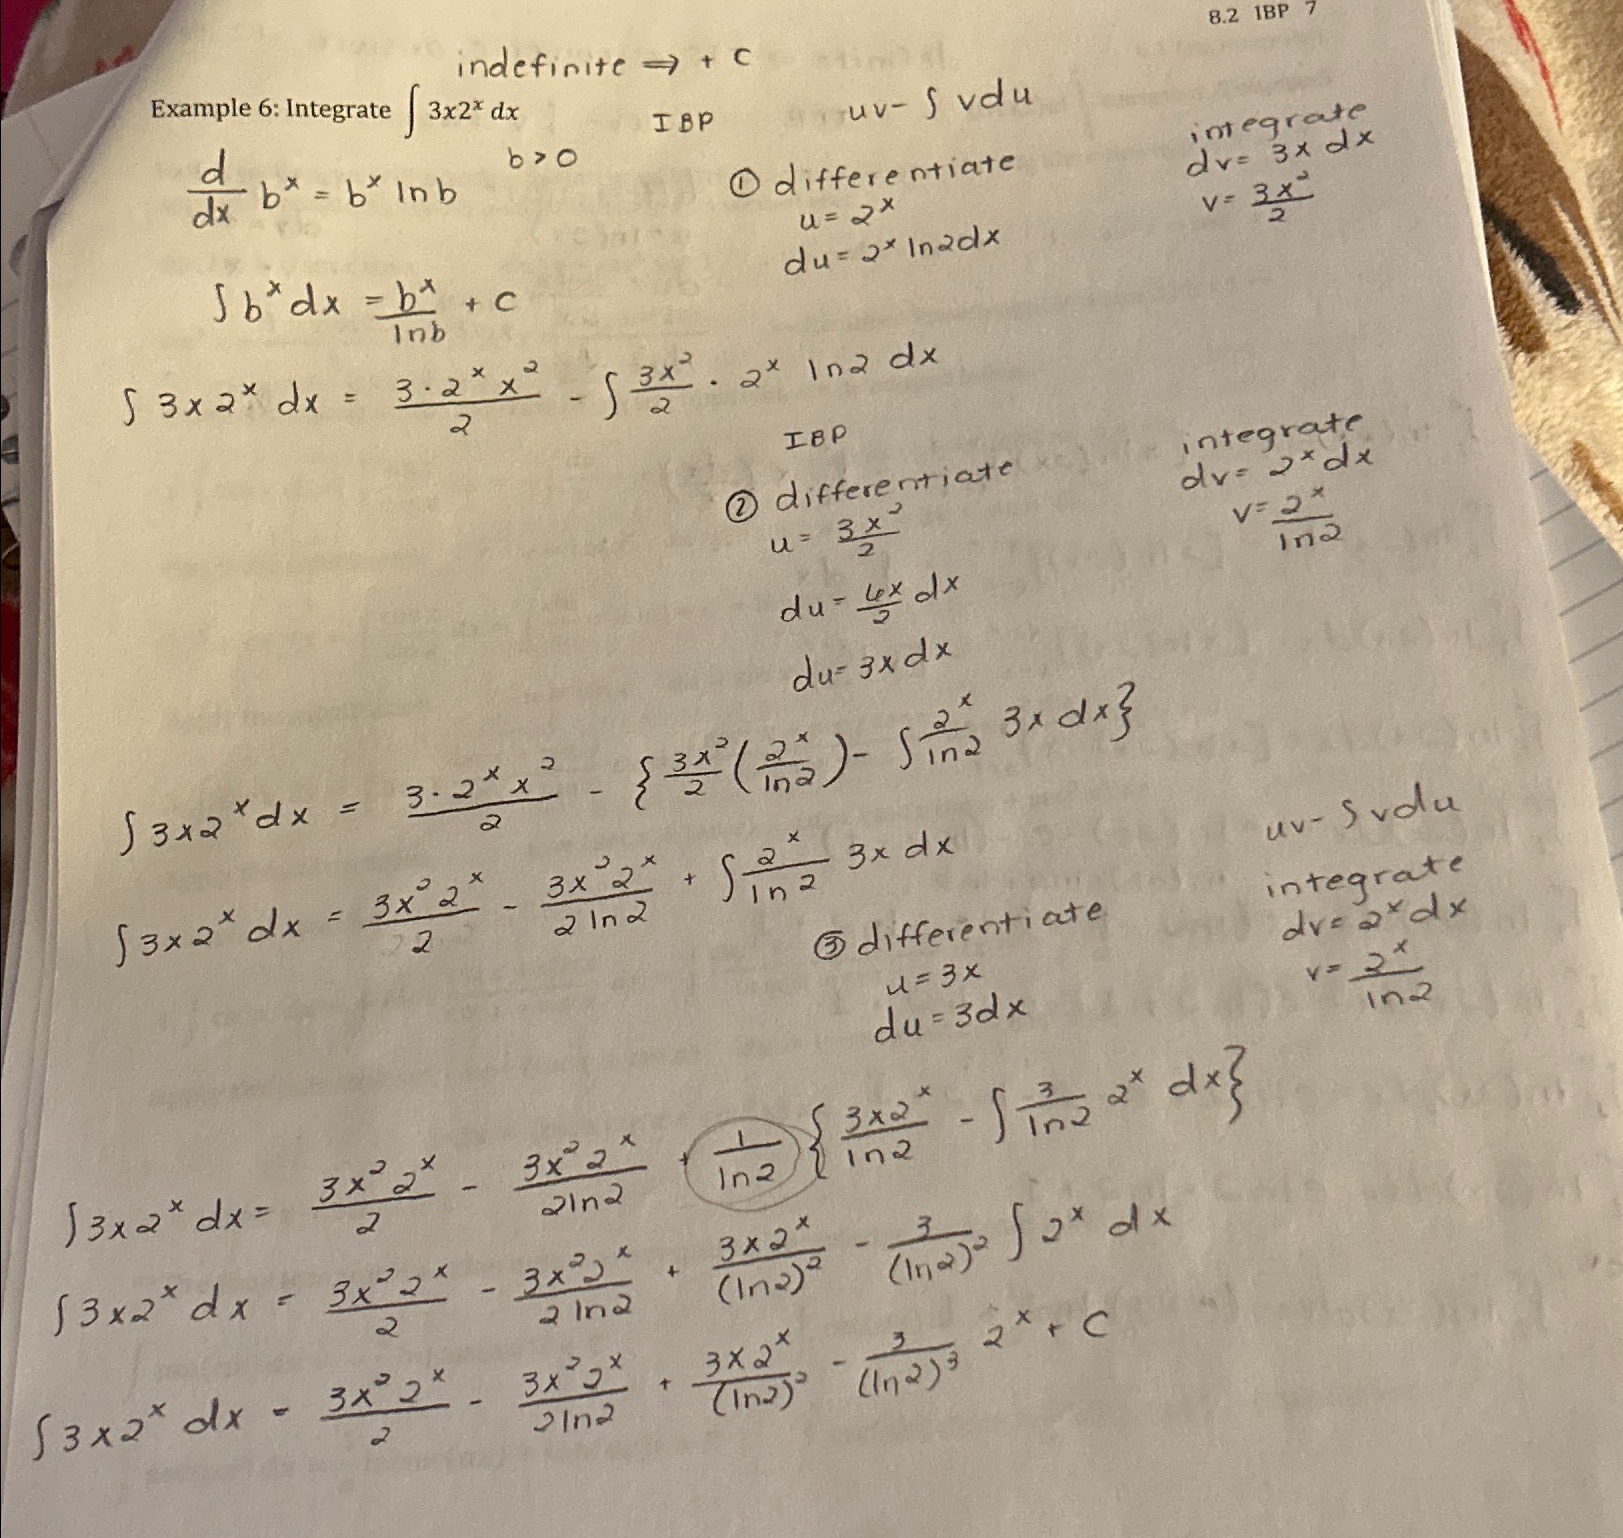 8.2 IBP 7
indefinite ⇒ + C
Example 6: Integrate ∫ 3x2ˣ dx
IBP
uv- ∫ vdu
d/dx bˣ = bˣ ln b
b > 0
① differentiate
u = 2ˣ
du = 2ˣ ln2dx
integrate
dv = 3x dx
v = 3x²/2
∫ bˣ dx = bˣ/lnb + C
∫ 3x2ˣ dx = 3·2ˣx²/2 - ∫ 3x²/2 · 2ˣ ln2 dx
IBP
② differentiate
u = 3x²/2
du = 6x/2 dx
du = 3x dx
integrate
dv = 2ˣ dx
v = 2ˣ/ln2
∫ 3x2ˣ dx = 3·2ˣx²/2 - {3x²/2 (2ˣ/ln2) - ∫ 2ˣ/ln2 3x dx}
∫ 3x2ˣ dx = 3x²2ˣ/2 - 3x²2ˣ/2ln2 + ∫ 2ˣ/ln2 3x dx
uv- ∫ vdu
③ differentiate
u = 3x
du = 3dx
integrate
dv = 2ˣ dx
v = 2ˣ/ln2
∫ 3x2ˣ dx = 3x²2ˣ/2 - 3x²2ˣ/2ln2 + 1/ln2 {3x2ˣ/ln2 - ∫ 3/ln2 2ˣ dx}
∫ 3x2ˣ dx = 3x²2ˣ/2 - 3x²2ˣ/2ln2 + 3x2ˣ/(ln2)² - 3/(ln2)² ∫ 2ˣ dx
∫ 3x2ˣ dx = 3x²2ˣ/2 - 3x²2ˣ/2ln2 + 3x2ˣ/(ln2)² - 3/(ln2)³ 2ˣ + C